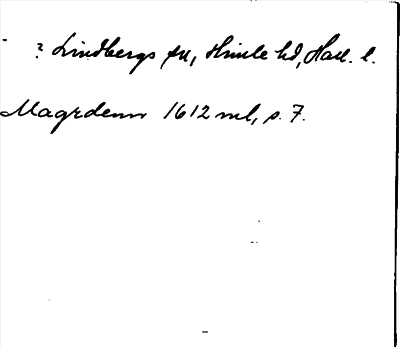 ? Lindbergs sn, Himle hd, Hall. l.
Magrdenn 1612 ml, s. 7.